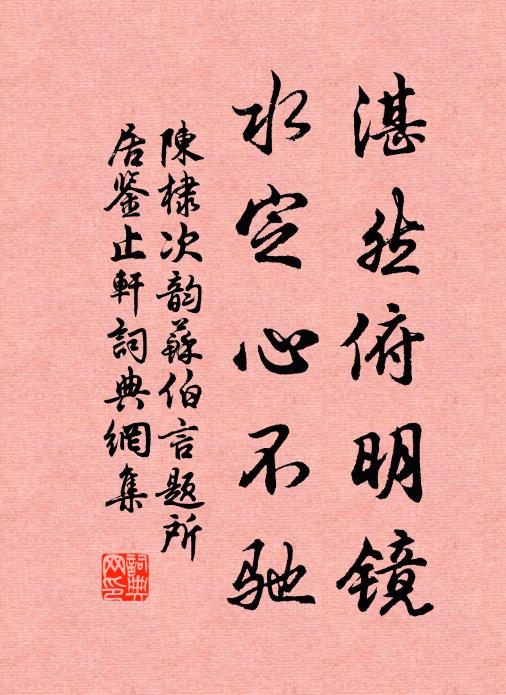 湛然俯明镜
水定心不驰
陳棣次韵蘇伯言題所
居鉴止軒詞典網集
詞典
网印